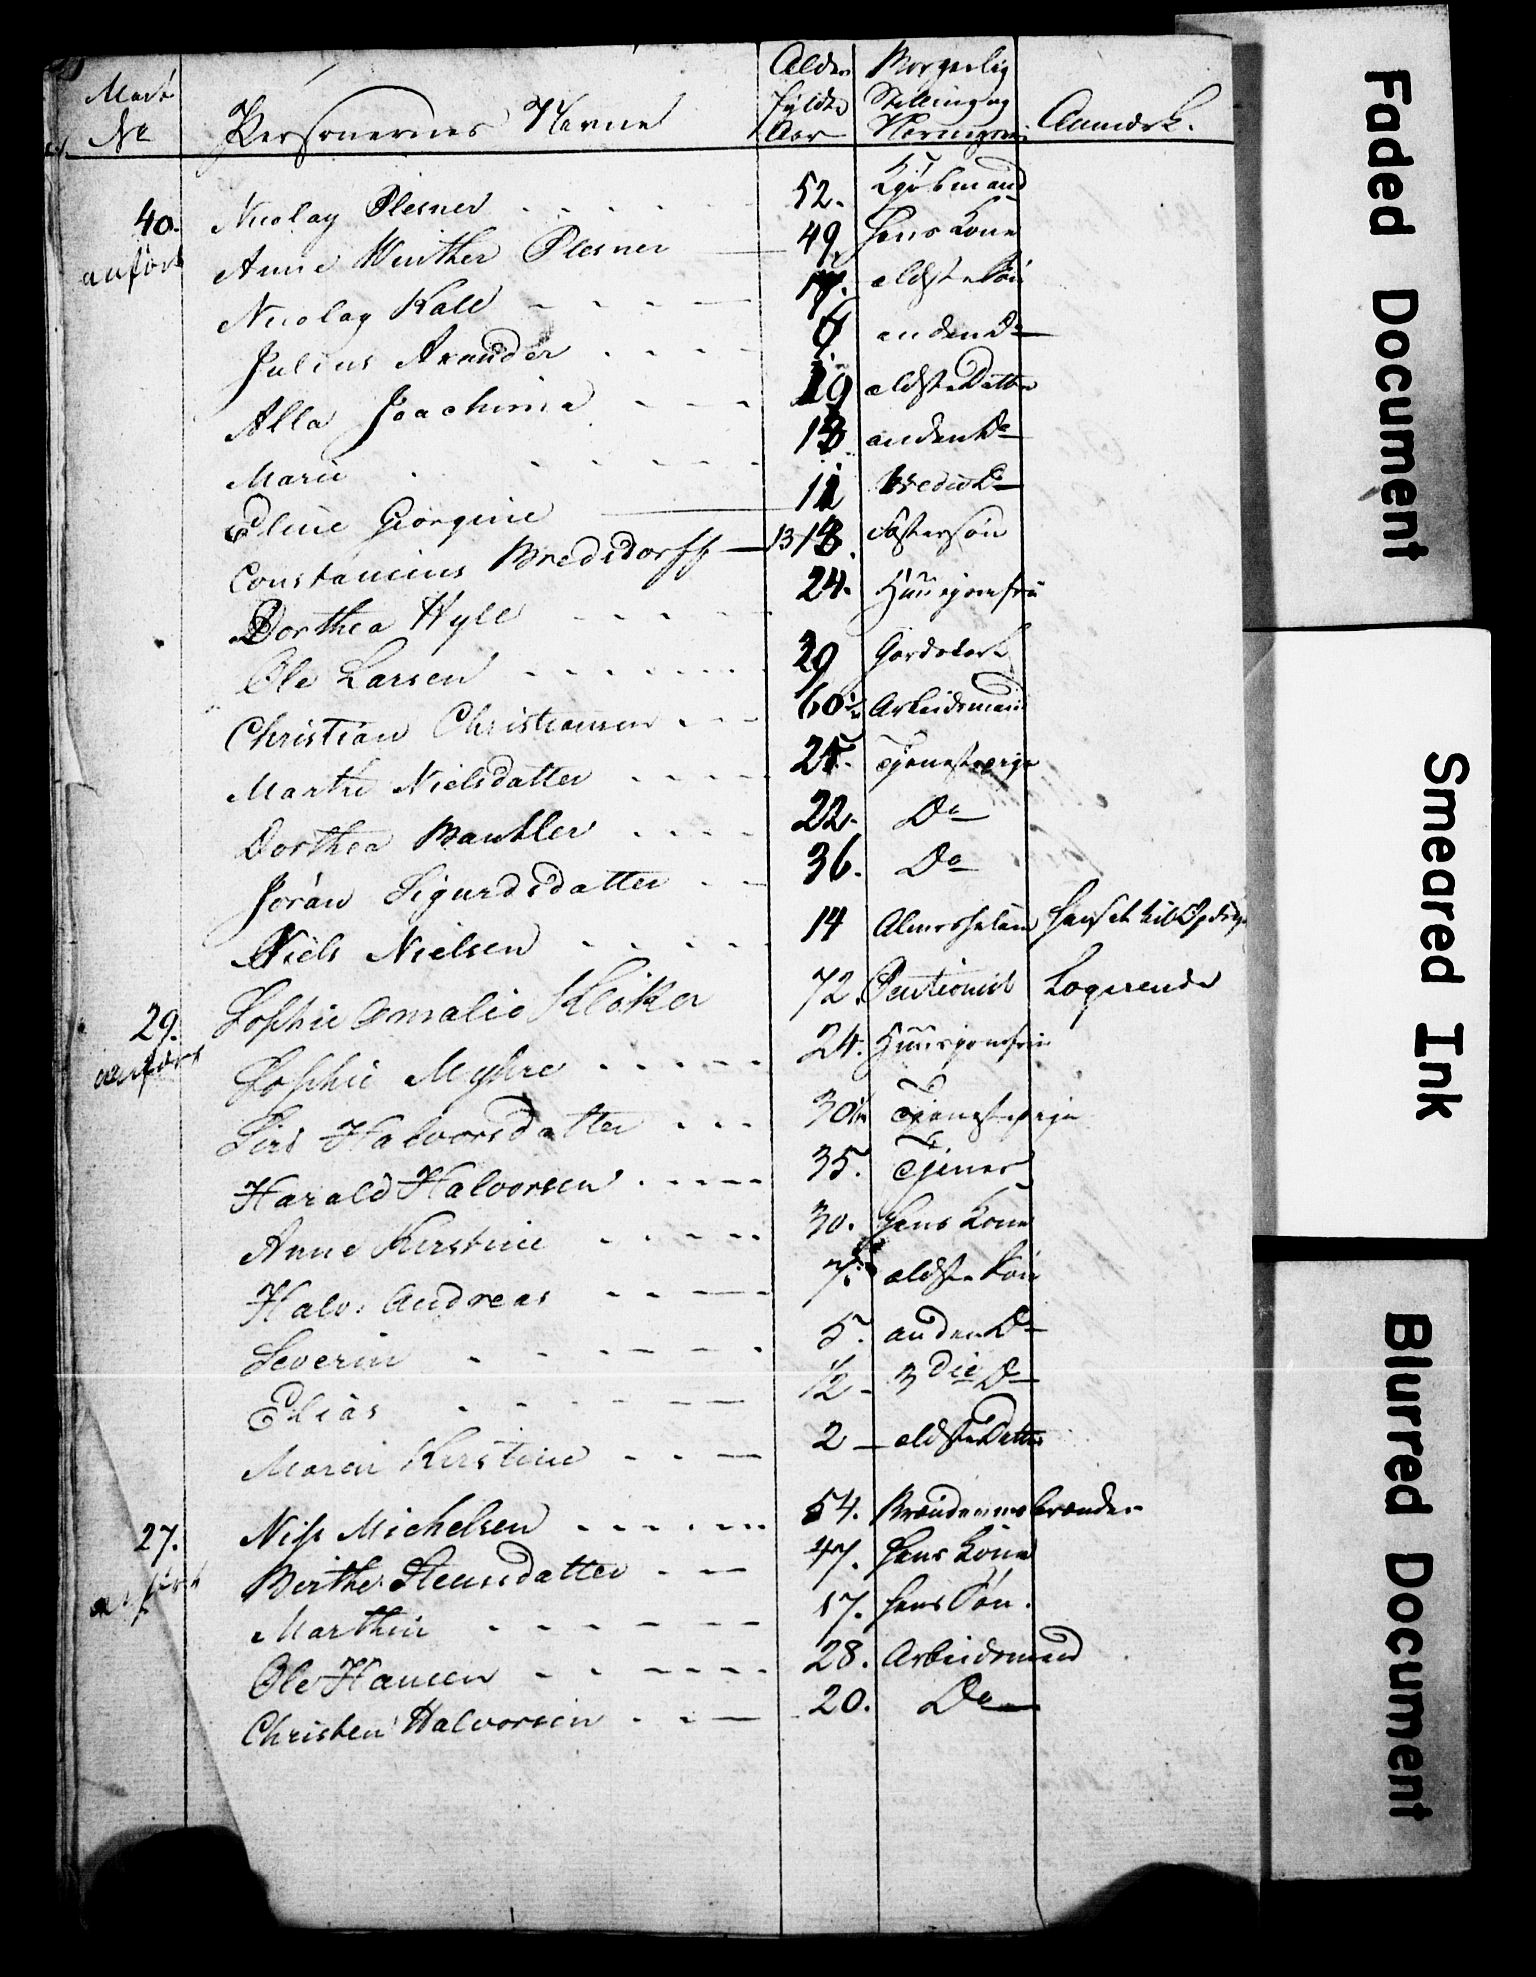 Matr No | Personernes Navne | Alder fyldte Aar | Borgerlig Stilling og Næringsvei | Anmærk.
40. anført | Nicolay Plesner | 52. | Kjöbmand
Anne Winther Plesner | 49. | hans Kone
Nicolay Kall | 17. | ældste Sön
Julius Arander | 6 | anden Do
Alla Joachime | 19 | ældste Datter
Marie | 13 | anden Do
Eline Georgine | 11 | tredie Do
Constancius Bredsdorff | 13 | Fostersön
Dorthea Hyll | 24. | Huusjomfru
Ole Larsen | 29 | Gardskarl
Christian Christiansen | 60½ | Arbeidsmand
Marthe Nielsdatter | 25. | Tjenestepige
Dorthea Bantler | 22. | Do
Jorån Sigurdsdatter | 36. | Do
Niels Nielsen | 14 | Almisselem
29. anført | Sophie Amalie Klöker | 72. | Pentionist | Logerende
Sophie Myhre | 24. | Huusjomfru
Siri Halvorsdatter | 30½ | Tjenestepige
Harald Halvorsen | 35. | Tjener
Anne Kirstine | 30. | hans Kone
Halv: Andreas | 7. | ældste Sön
Severin | 5. | anden Do
Elias | ½ | 3die Do
Maren Kirstine | 2 | ældste Datter
27. anført | Niss Michelsen | 54. | Brændeviinsbrænder
Berthe Steensdatter | 47. | hans Kone
Marthin | 17. | hans Sön.
Ole Hansen | 28. | Arbeidsmand
Christen Halvorsen | 20. | Do
Faded Document
Smeared Ink
Blurred Document